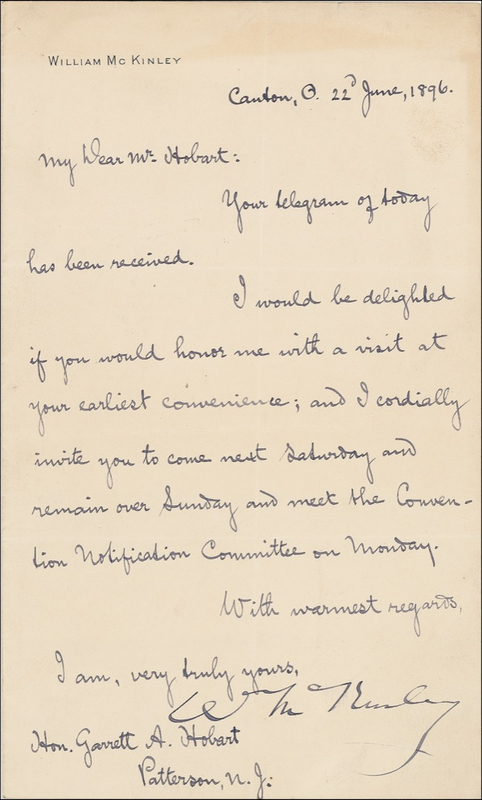 WILLIAM McKINLEY
Canton, O. 22d June, 1896.
My Dear Mr. Hobart:
Your telegram of today
has been received.
I would be delighted
if you would honor me with a visit at
your earliest convenience; and I cordially
invite you to come next Saturday and
remain over Sunday and meet the Conven-
tion Notification Committee on Monday.
With warmest regards,
I am, very truly yours,
Wm McKinley
Hon. Garrett A. Hobart
Patterson, N. J.: